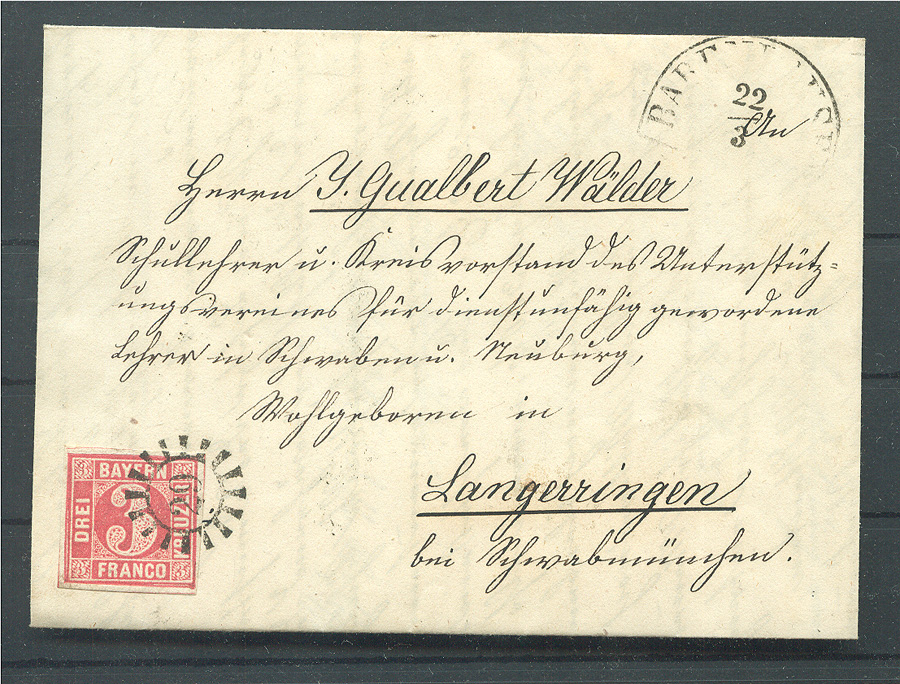 22
3
An
Herrn J. Gualbert Wälder
Schullehrer u. Kreisvorstand des Unterstütz=
ungsvereines für dienstunfähig gewordene
Lehrer in Schwaben u. Neuburg,
Wohlgeboren in
Langerringen
bei Schwabmünchen.
BAYERN
DREI
3
KREUZER
FRANCO